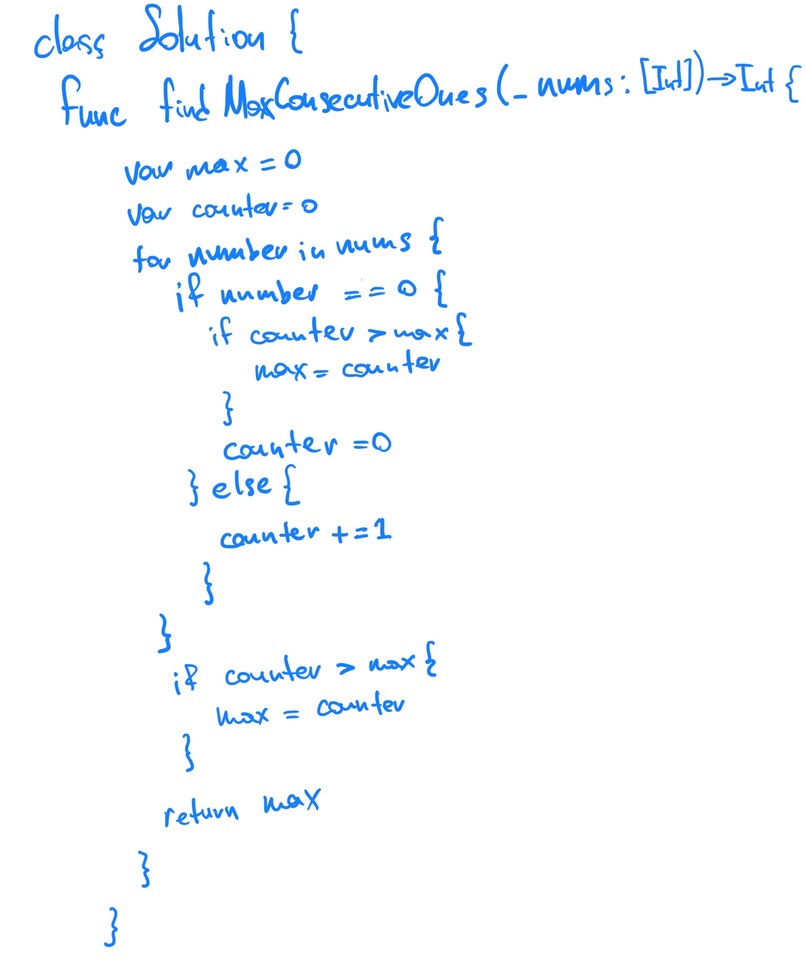 class Solution {
func findMaxConsecutiveOnes(_ nums: [Int]) → Int {
var max = 0
var counter = 0
for number in nums {
if number == 0 {
if counter > max {
max = counter
}
counter = 0
} else {
counter += 1
}
}
if counter > max {
max = counter
}
return max
}
}